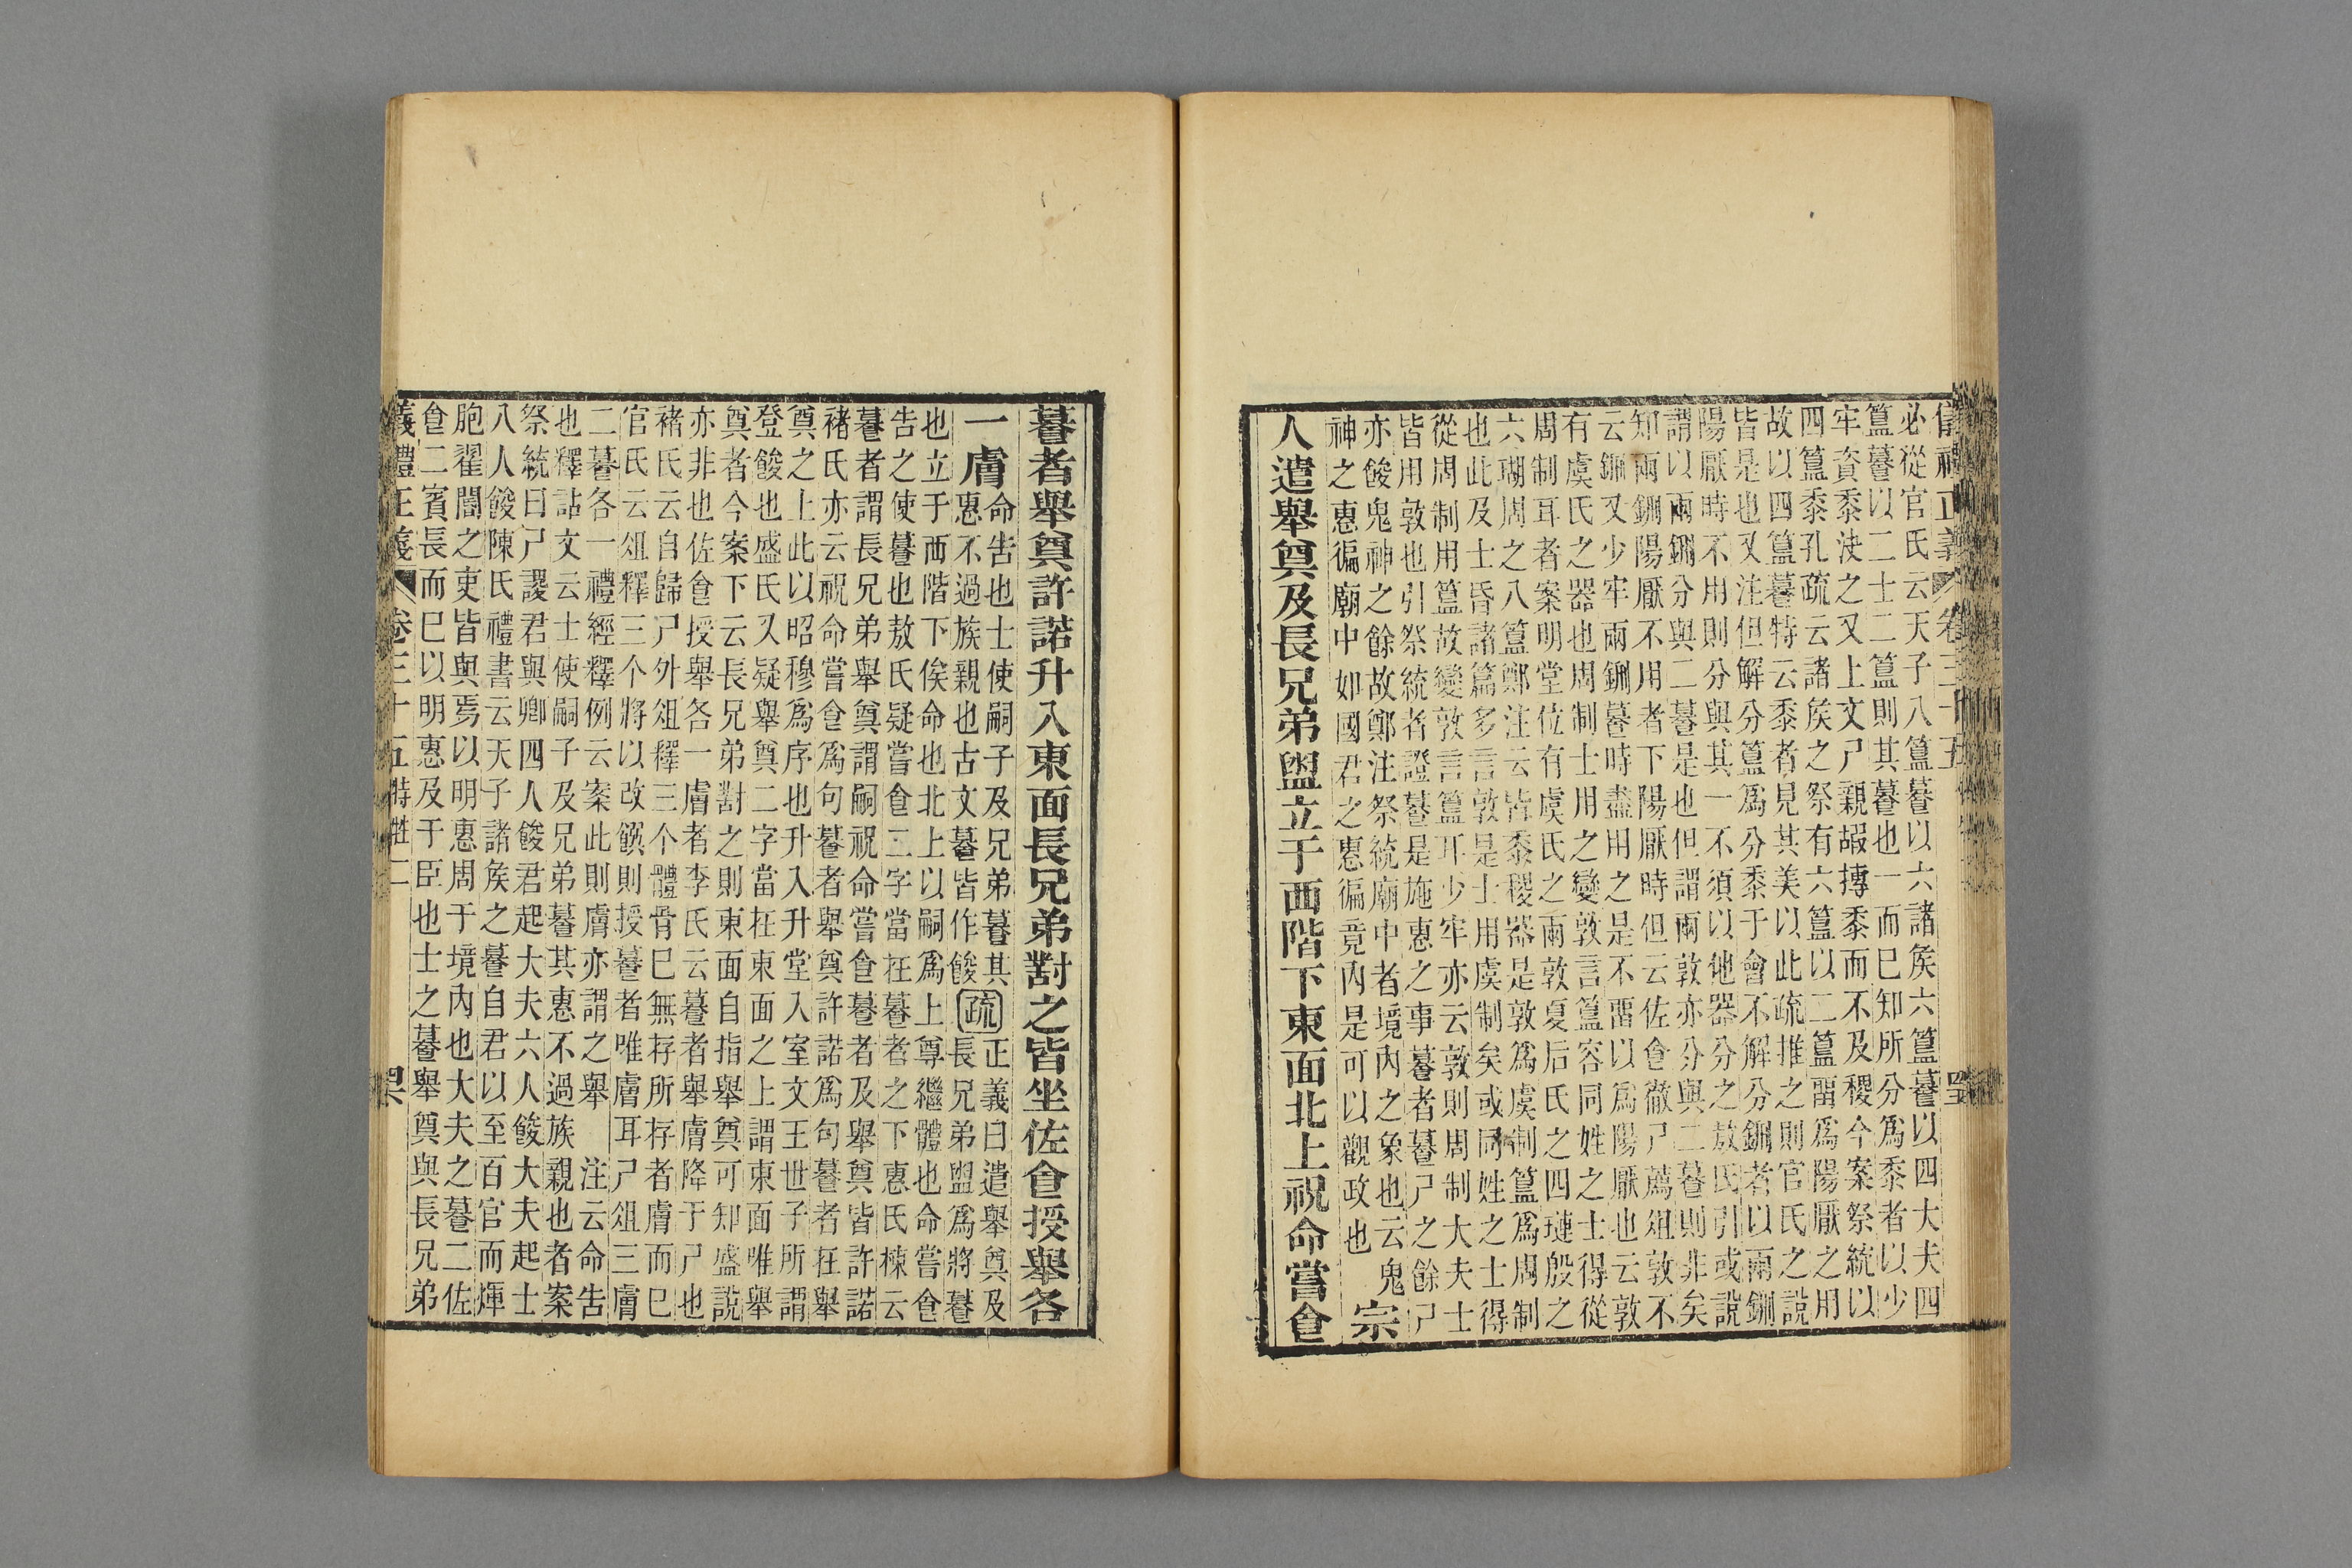 必從官氏云天子八簋䉵以六諸矦六簋䉵以四大夫四
簋䉵以二士二簋則其䉵也一而已知所分爲黍者以少
牢資黍决之又上文尸親嘏摶黍而不及稷今案祭統以
四簋黍孔疏云諸矦之祭有六簋以二簋畱爲陽厭之用
故以四簋䉵特云黍者見其美以此疏推之則官氏之說
皆是也又注但解分簋爲分黍于會不解分鉶者以兩鉶
陽厭時不用則分與其一不須以他器分之敖氏引或說
謂以兩鉶分與二䉵是也但謂兩敦亦分與二䉵則非矣
知兩鉶陽厭不用者下陽厭時但云佐食徹尸薦俎敦不
云鉶又少牢兩鉶䉵時盡用之是不畱以爲陽厭也云敦
有虞氏之器也周制士用之變敦言簋容同姓之士得從
周制耳者案明堂位有虞氏之兩敦夏后氏之四璉殷之
六瑚周之八簋鄭注云皆黍稷器是敦爲虞制簋爲周制
也此及士昏諸篇多言敦是士用虞制矣或同姓之士得
從周制用簋故變敦言簋耳少牢亦云敦則周制大夫士
皆用敦也引祭統者證䉵是施惠之事䉵者䉵尸之餘尸
亦餕鬼神之餘故鄭注祭統廟中者境內之象也云鬼
神之惠徧廟中如國君之惠徧竟內是可以觀政也
宗
人遣舉奠及長兄弟盥立于西階下東面北上祝命嘗食
䉵者舉奠許諾升入東面長兄弟對之皆坐佐食授舉各
一膚
命告也士使嗣子及兄弟䉵其
惠不過族親也古文䉵皆作餕
疏
正義曰遣舉奠及
長兄弟盥爲將䉵
也立于西階下俟命也北上以嗣爲上尊繼體也命嘗食
告之使䉵也敖氏疑嘗食二字當在䉵者之下惠氏棟云
䉵者謂長兄弟舉奠謂嗣祝命嘗食䉵者及舉奠皆許諾
褚氏亦云祝命嘗食爲句䉵者舉奠許諾爲句䉵者在舉
奠之上此以昭穆爲序也升入升堂入室文王世子所謂
登餕也盛氏又疑舉奠二字當在東面之上謂東面唯舉
奠者今案下云長兄弟對之則東面自指舉奠可知盛說
亦非也佐食授舉各一膚者李氏云䉵者舉膚降于尸也
褚氏云自歸尸外俎釋三个體骨已無存所存者膚而已
官氏云俎釋三个將以改饌則授䉵者唯膚耳尸俎三膚
二䉵各一禮經釋例云案此則膚亦謂之舉　注云命告
也釋詁文云士使嗣子及兄弟䉵其惠不過族親也者案
祭統曰尸謖君與卿四人餕君起大夫六人餕大夫起士
八人餕陳氏禮書云天子諸矦之䉵自君以至百官而煇
胞翟閽之吏皆與焉以明惠周于境內也大夫之䉵二佐
食二賓長而已以明惠及于臣也士之䉵舉奠與長兄弟
義禮正義　卷三十五特牲二